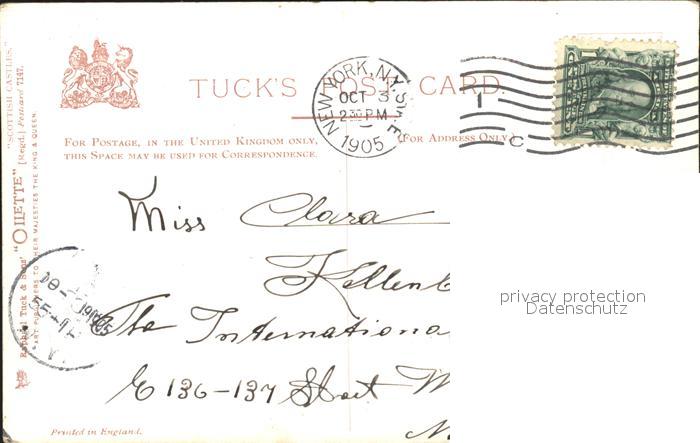 TUCK'S POST CARD.
NEW YORK, N.Y. STA. E
OCT 3
2 30 PM
1905
1
C
FOR POSTAGE, IN THE UNITED KINGDOM ONLY,
THIS SPACE MAY BE USED FOR CORRESPONDENCE.
(FOR ADDRESS ONLY.)
"SCOTTISH CASTLES."
Raphael Tuck & Sons' "OILETTE" [Regd.] Postcard 7147.
ART PUBLISHERS TO THEIR MAJESTIES THE KING & QUEEN.
Miss Clara
Kellenb
The Internationa
E 136-137 Street
N.
1905
privacy protection
Datenschutz
Printed in England.